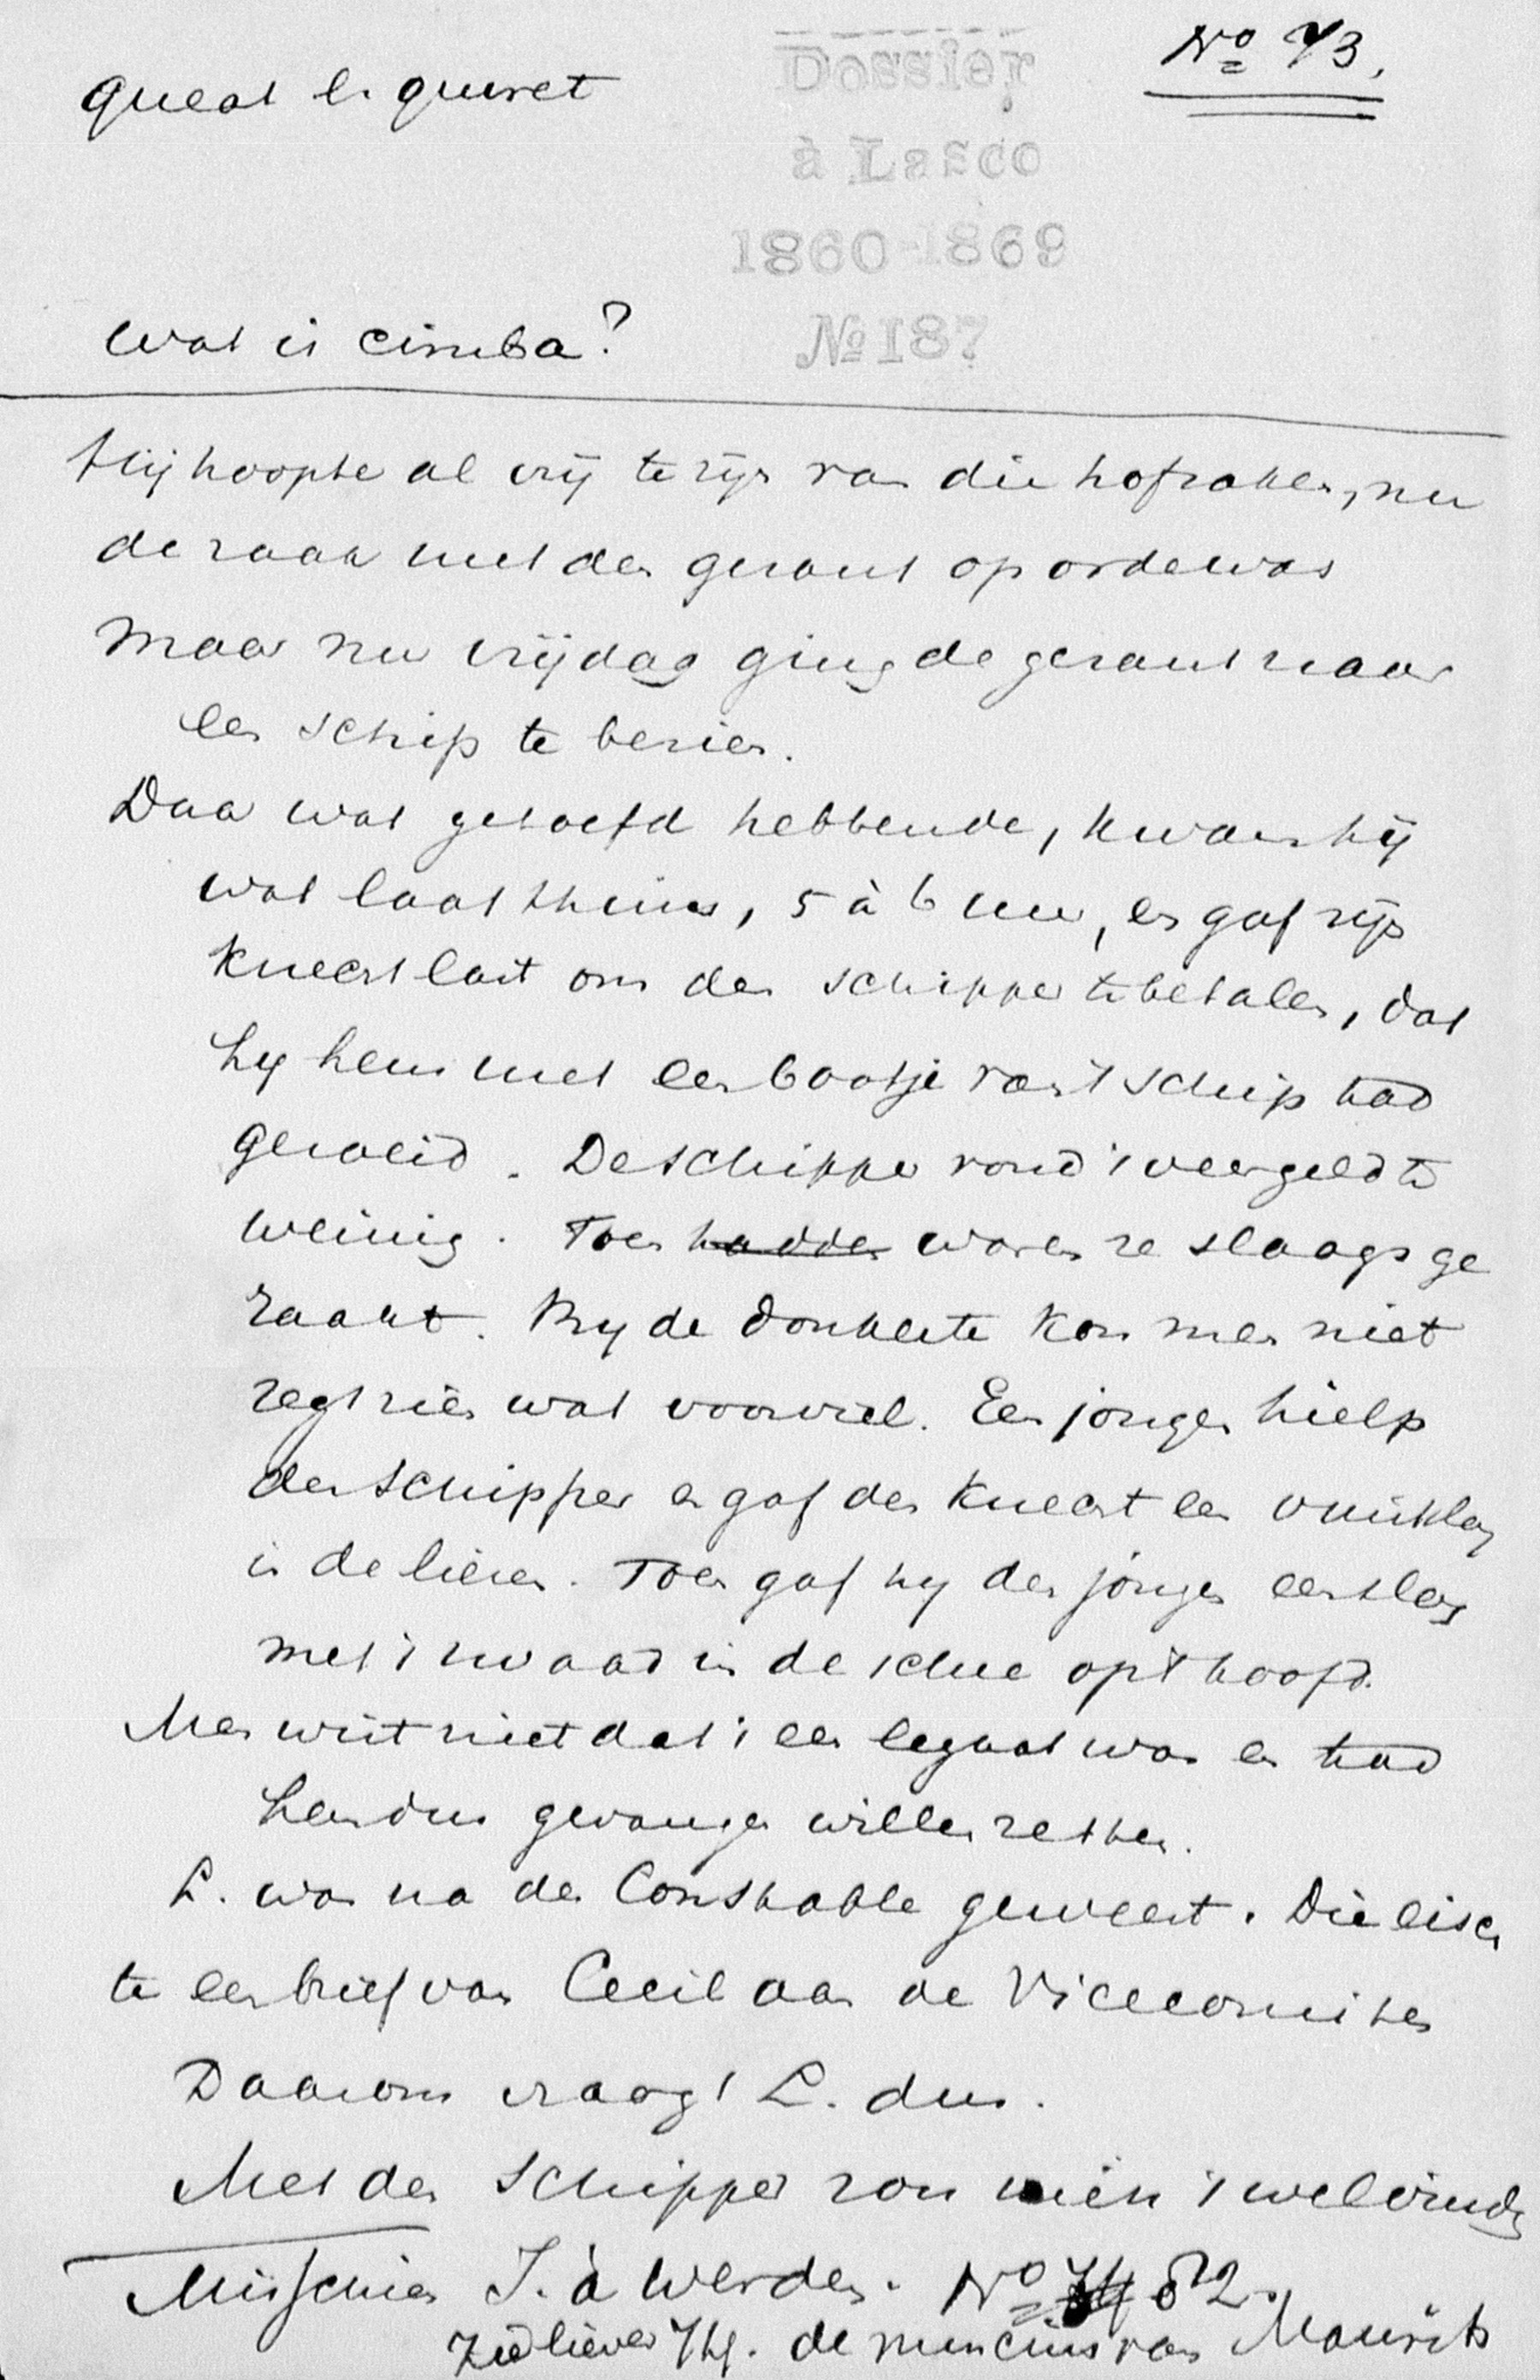 Dossier
à Lasco
1860-1869
№ 187
No 73.
queat liquet
Wat is cimba?
Hij hoopte al vrij te zijn van die hofzaken, nu
de zaak met den gerant op orde was
Maar nu vrijdag ging de gerant naar
een schip te bezien.
Daar wat getoefd hebbende, kwam hij
wat laat thuis, 5 à 6 uur, en gaf zijn
knecht last om den schipper te betalen, dat
hij hem met een bootje van 't schip had
geroeid. De schipper vond 't veergeld te
weinig. Toen hadden waren ze slaags ge
raakt. By de donkerte kon men niet
regt zien wat voorviel. Een jongen hielp
den schipper en gaf den knecht een vuistslag
in de lieden. Toen gaf hy den jongen een slag
met 't zwaard in de schee op 't hoofd.
Men wist niet dat 't een legaat was en had
hem dus gevangen willen zetten.
L. was na den Constable geweest. Die eisch
te een brief van Cecil aan de Vicecomites
Daarom vraagt L. dus.
Met den schipper zou men 't wel vinden
Misschien J. à Werden. No 82.
Zie liever 74. de nuncius van Maurits